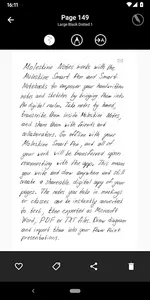 16:11
Page 149
Large Blank Dotted 1
Moleskine Notes work with the
Moleskine Smart Pen and Smart
Notebooks to empower your handwritten
notes and sketches by bringing them into
the digital realm. Take notes by hand,
transcribe them inside Moleskine Notes,
and share them with friends and
collaborators. Go offline with your
Moleskine Smart Pen, and all of
your work will be transferred upon
reconnecting with the app. This means
you write and draw anywhere and still
create a shareable digital copy of your
pages. The notes you take in meetings
or classes can be instantly converted
to text, then exported as Microsoft
Word, PDF or TXT file. Draw diagrams
and import them into your Power Point
presentations.